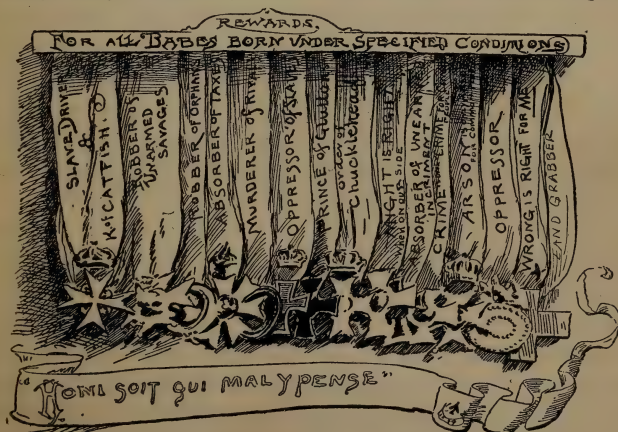 REWARDS.
FOR ALL BABES BORN VNDER SPECIFIED CONDITIONS
SLAVE DRIVER
&
K of CATFISH.
ROBBER OF
UNARMED
SAVAGES
ROBBER OF ORPHANS
ABSORBER OF TAXES
MURDERER of RIVALS
OPPRESSOR OF SLAVES
PRINCE of Gluttons
order of
Chucklehead
MIGHT IS RIGHT
ON OUR SIDE
ABSORBER OF UNEARNED
INCRIMENT
CRIME CRIME FOR
ARSON IS
FOR
OPPRESSOR
WRONG IS RIGHT FOR ME
LAND GRABBER
"HONI SOIT QUI MAL Y PENSE"